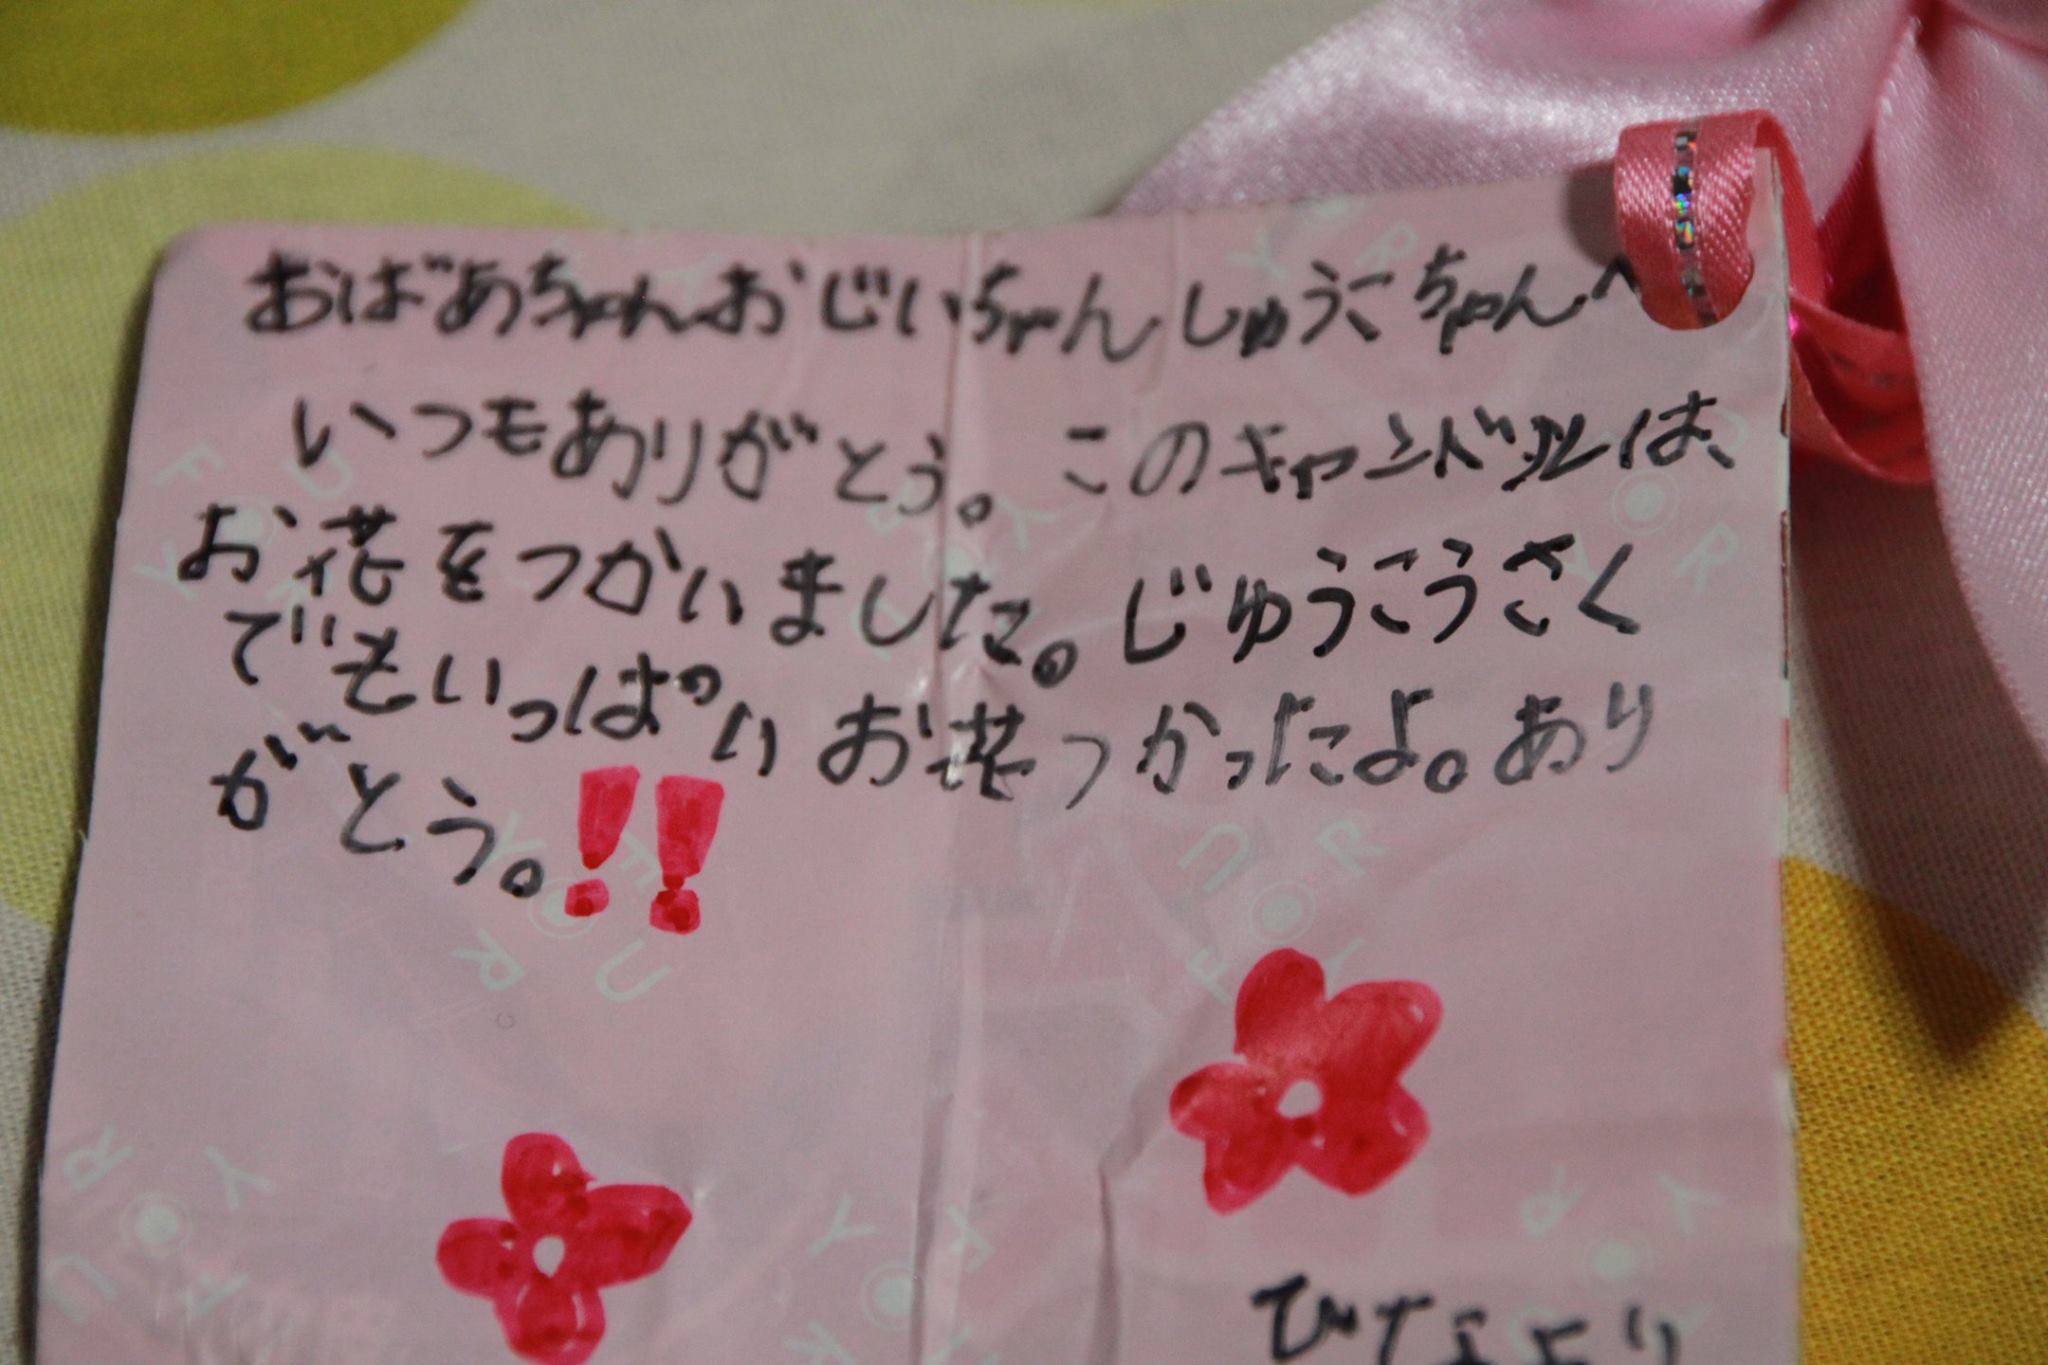 おばあちゃんおじいちゃんしゅうこちゃんへ
いつもありがとう。このキャンドルは、
お花をつかいました。じゆうこうさく
でもいっぱいお花つかったよ。あり
がとう。!!
ひなより
FOR YOU
FOR YOU
FOR YOU